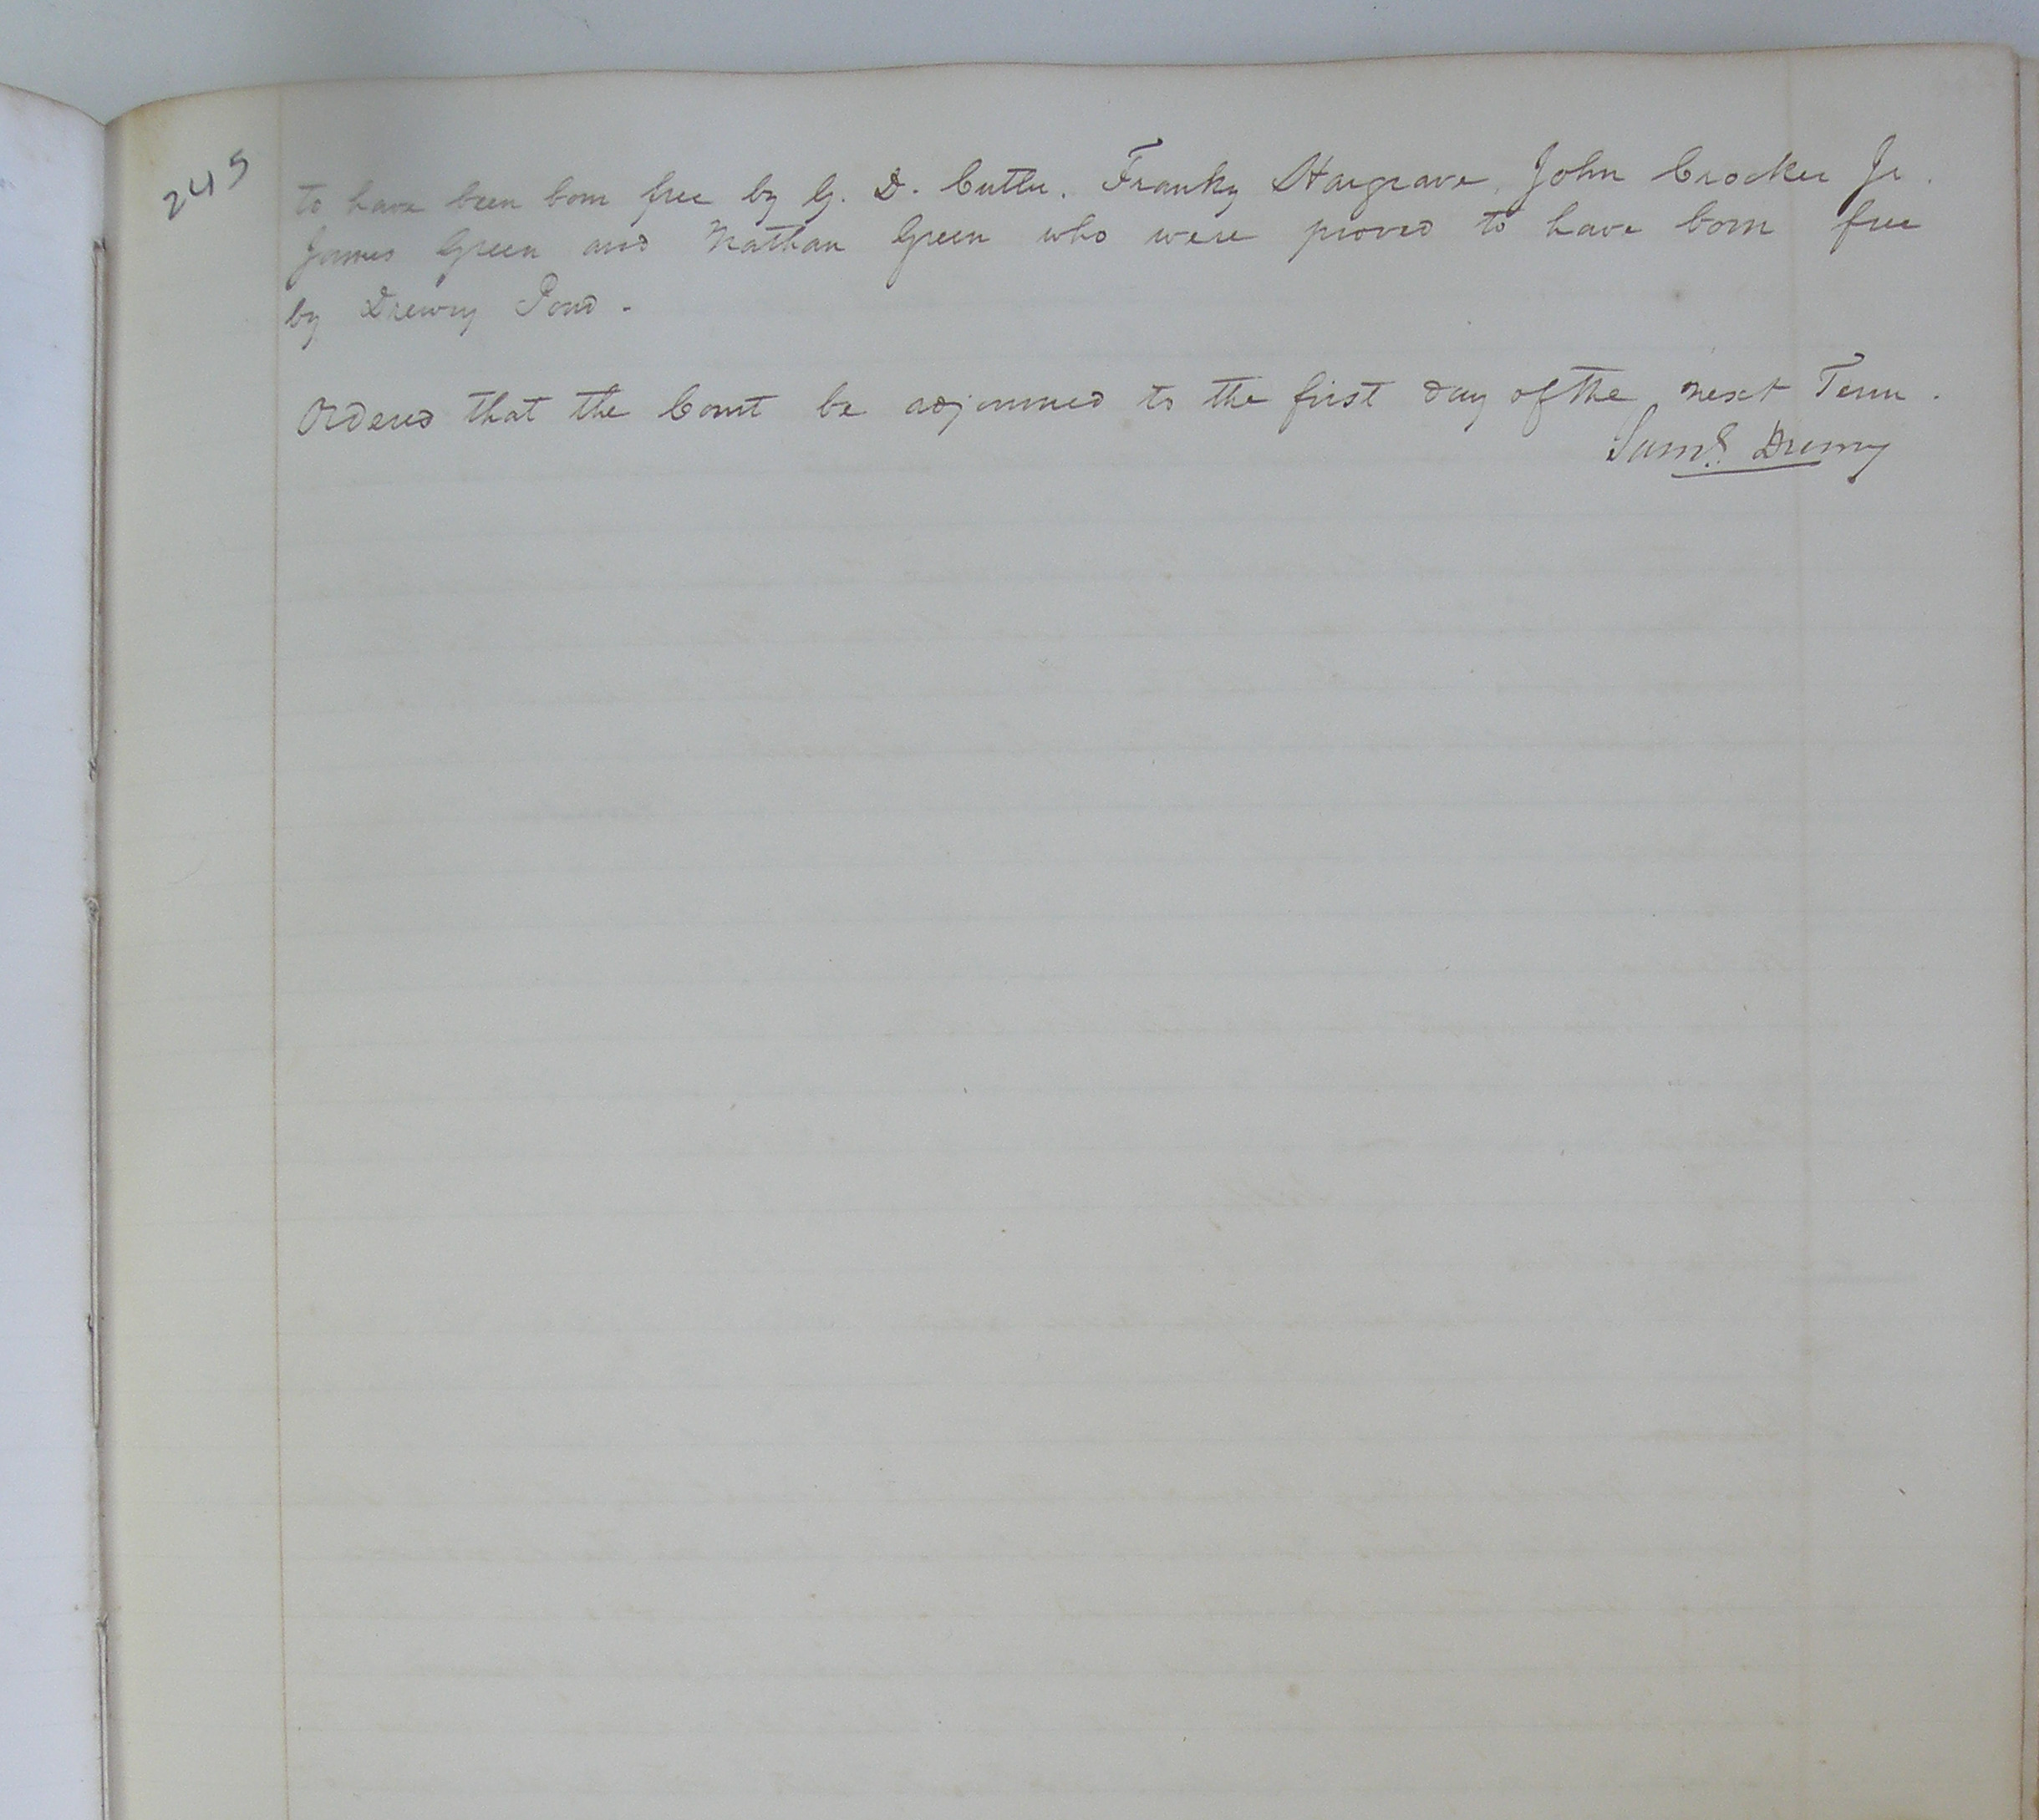 245
to have been born free by G. D. Cutler. Franky Hargrave, John Crocker Jr.
James Green and Nathan Green who were proved to have born free
by Drewry Pond.
Ordered that the Court be adjourned to the first day of the next Term.
Saml. Drewry